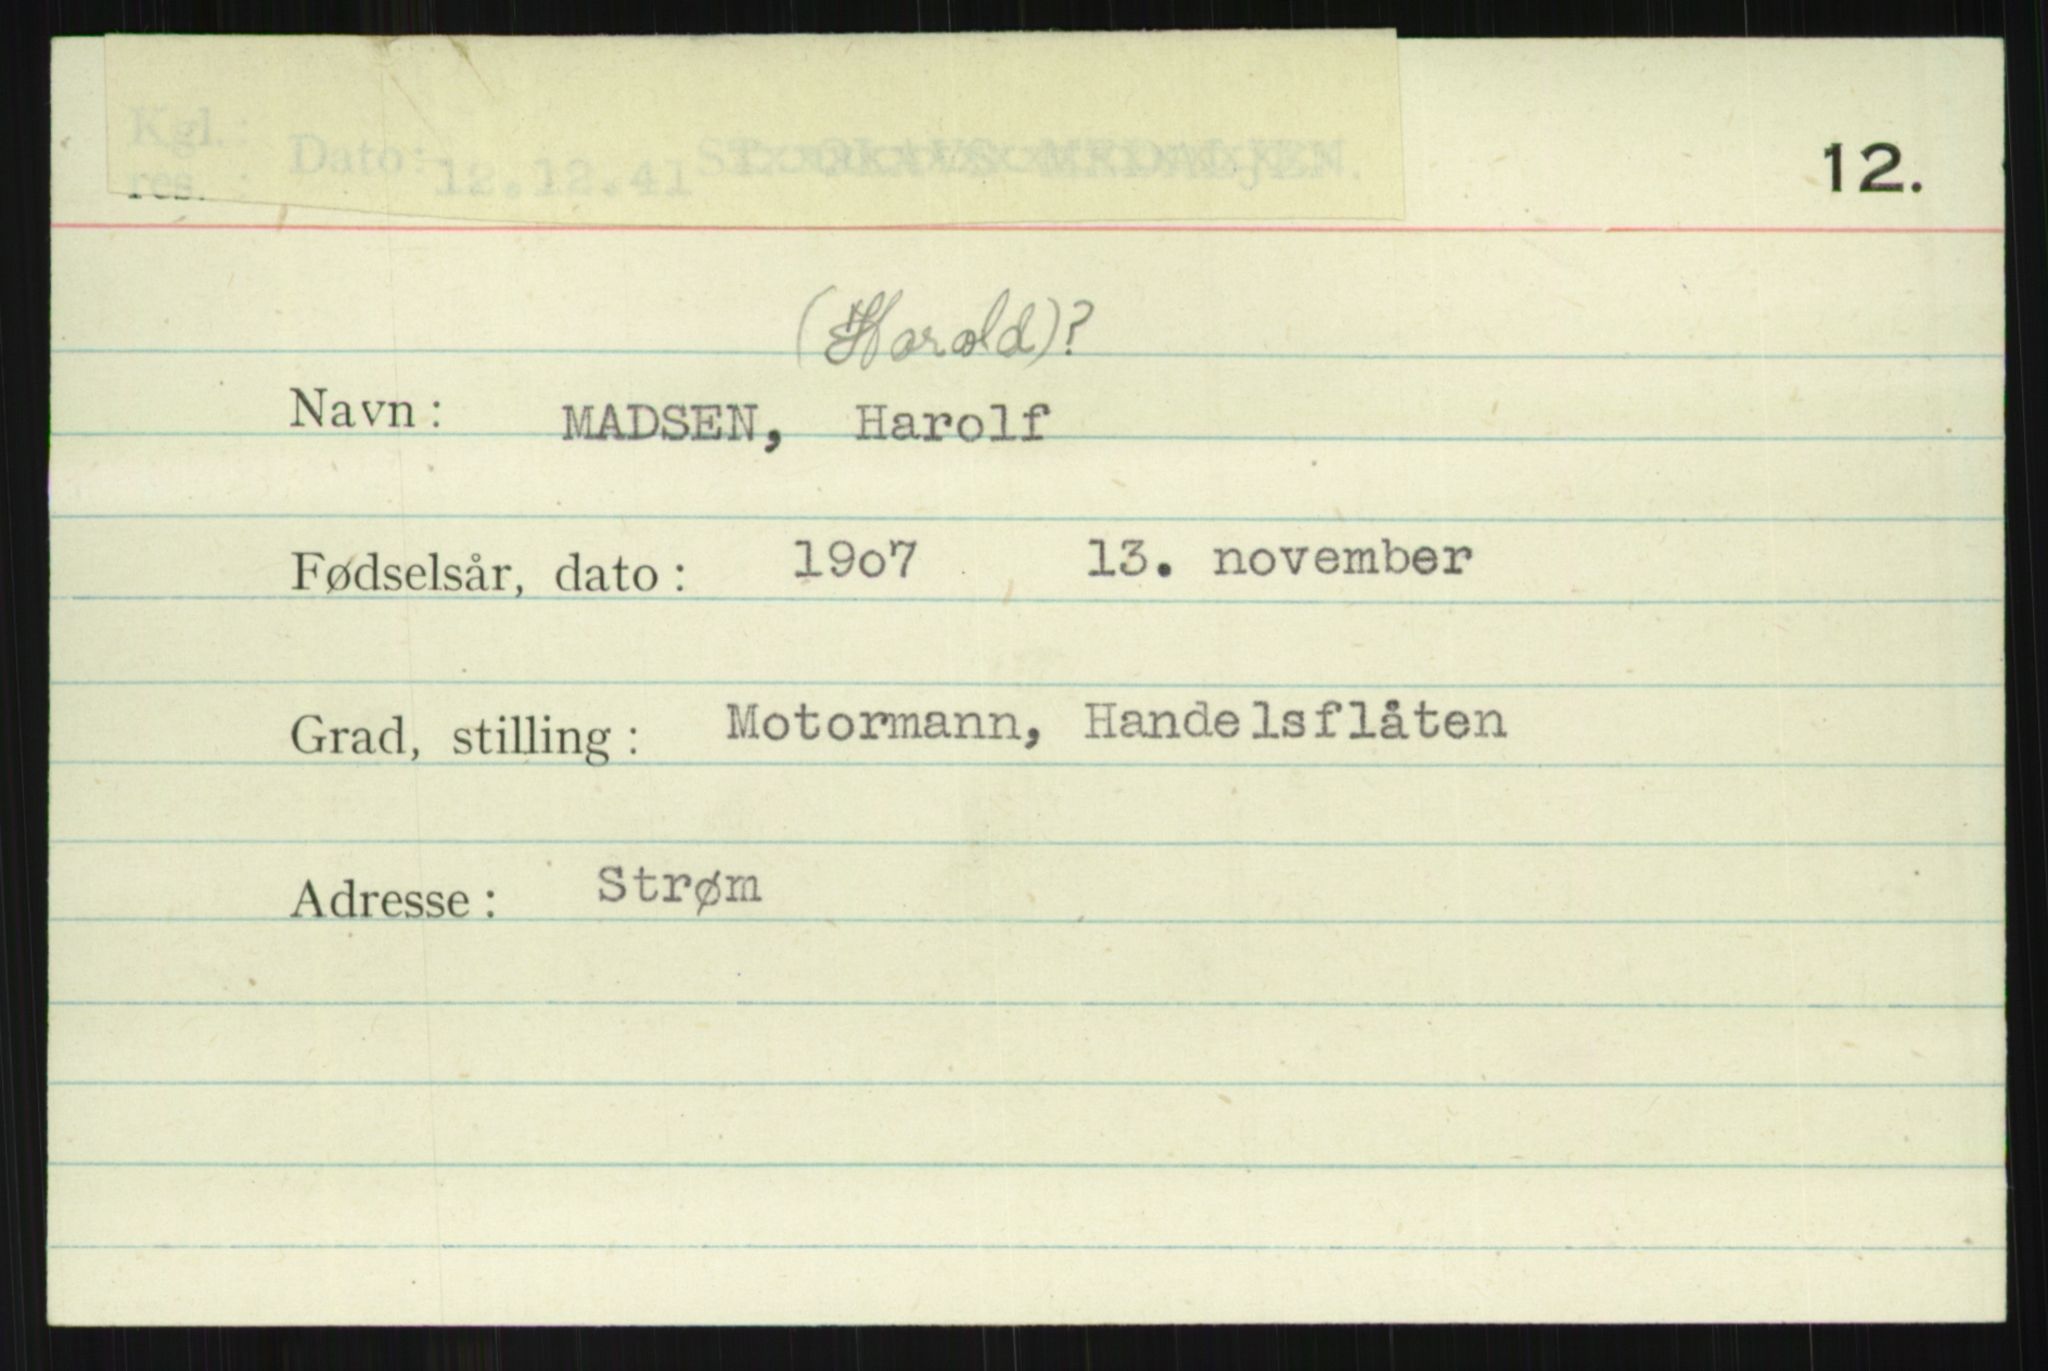 Kgl. :
res. :
Dato: 12.12.41 ST. OLAVS MEDALJEN.
12.
(Harald)?
Navn: MADSEN, Harolf
Fødselsår, dato: 19o7 13. november
Grad, stilling: Motormann, Handelsflåten
Adresse: Strøm